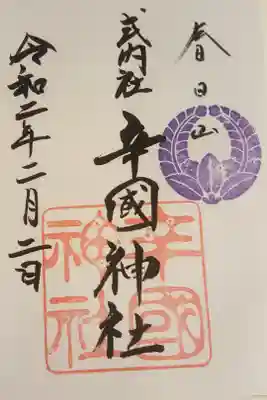 春日山
式内社
辛國神社
令和二年二月二日
辛國神社